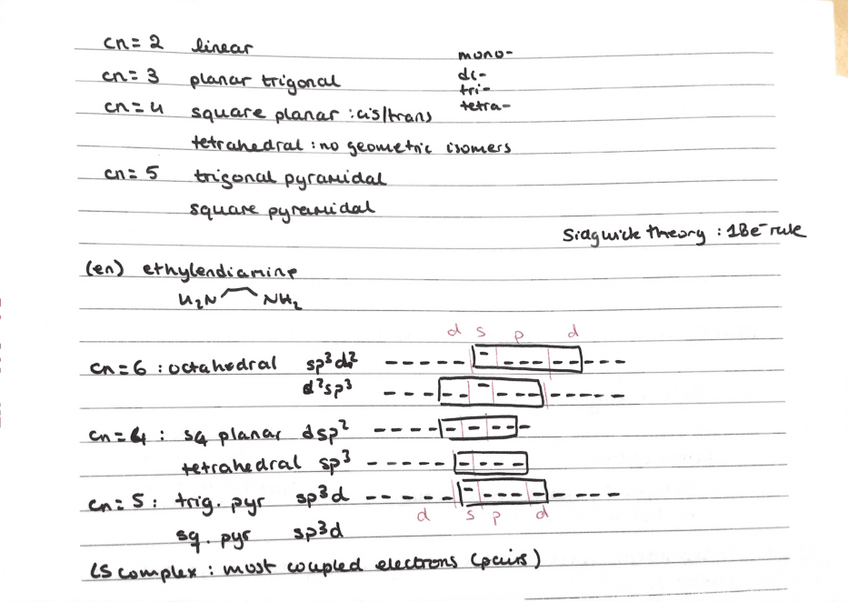 cn = 2 linear
mono-
cn = 3 planar trigonal
di-
tri-
cn = 4 square planar : cis/trans
tetra-
tetrahedral : no geometric isomers
cn = 5 trigonal pyramidal
square pyramidal
Sidgwick theory : 18e⁻ rule
(en) ethylendiamine
H₂N NH₂
d s p d
cn = 6 : octahedral sp³d²
d²sp³
cn = 4 : sq planar dsp²
tetrahedral sp³
cn = 5 : trig. pyr sp³d
d s p d
sq. pyr sp³d
LS complex : most coupled electrons (pairs)